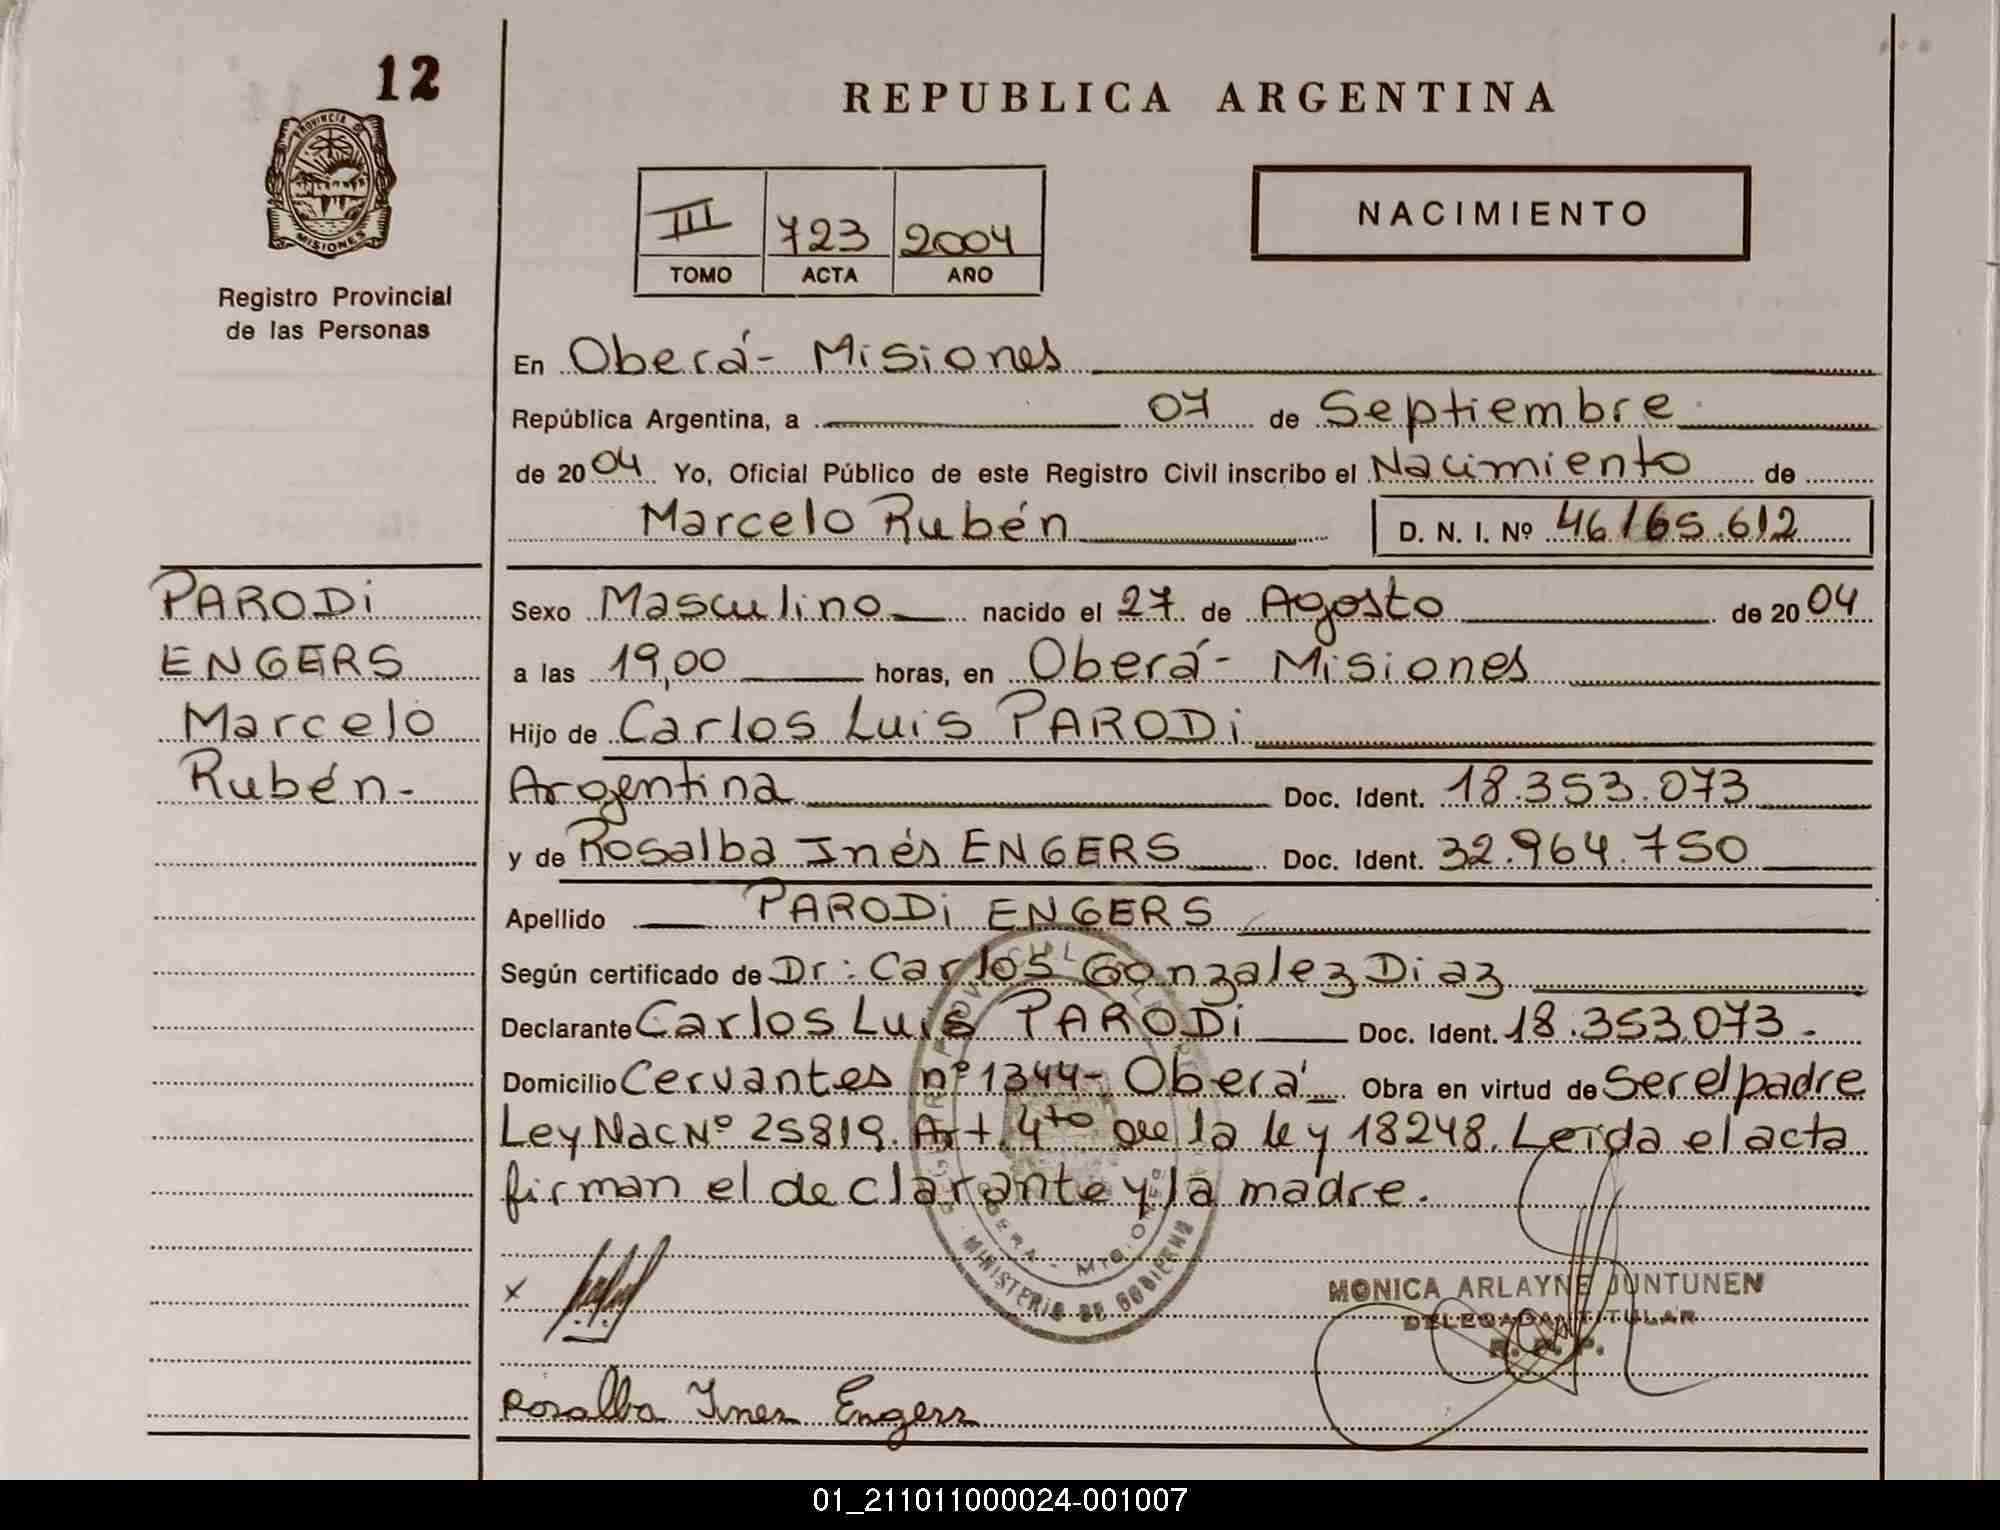 12
PROVINCIA DE
MISIONES
Registro Provincial
de las Personas
REPUBLICA ARGENTINA
III 723 2004
TOMO ACTA AÑO
NACIMIENTO
En Oberá - Misiones
República Argentina, a 07 de Septiembre
de 2004 Yo, Oficial Público de este Registro Civil inscribo el Nacimiento de
Marcelo Rubén D. N. I. Nº 46165.612
PARODi
ENGERS
Marcelo
Rubén -
Sexo Masculino nacido el 27 de Agosto de 2004
a las 19,00 horas, en Oberá - Misiones
Hijo de Carlos Luis PARODi
Argentina Doc. Ident. 18.353.073
y de Rosalba Inés ENGERS Doc. Ident. 32.964.750
Apellido PARODi ENGERS
Según certificado de Dr: Carlos Gonzalez Diaz
Declarante Carlos Luis PARODi Doc. Ident. 18.353.073 -
Domicilio Cervantes nº 1344 - Oberá Obra en virtud de Ser el padre
Ley Nac Nº 25819. Art. 4to de la ley 18248. Leída el acta
firman el declarante y la madre.
MINISTERIO DE GOBIERNO
x
MONICA ARLAYNE JUNTUNEN
DELEGADA TITULAR
R. P. P.
Rosalba Ines Engers
01_211011000024-001007